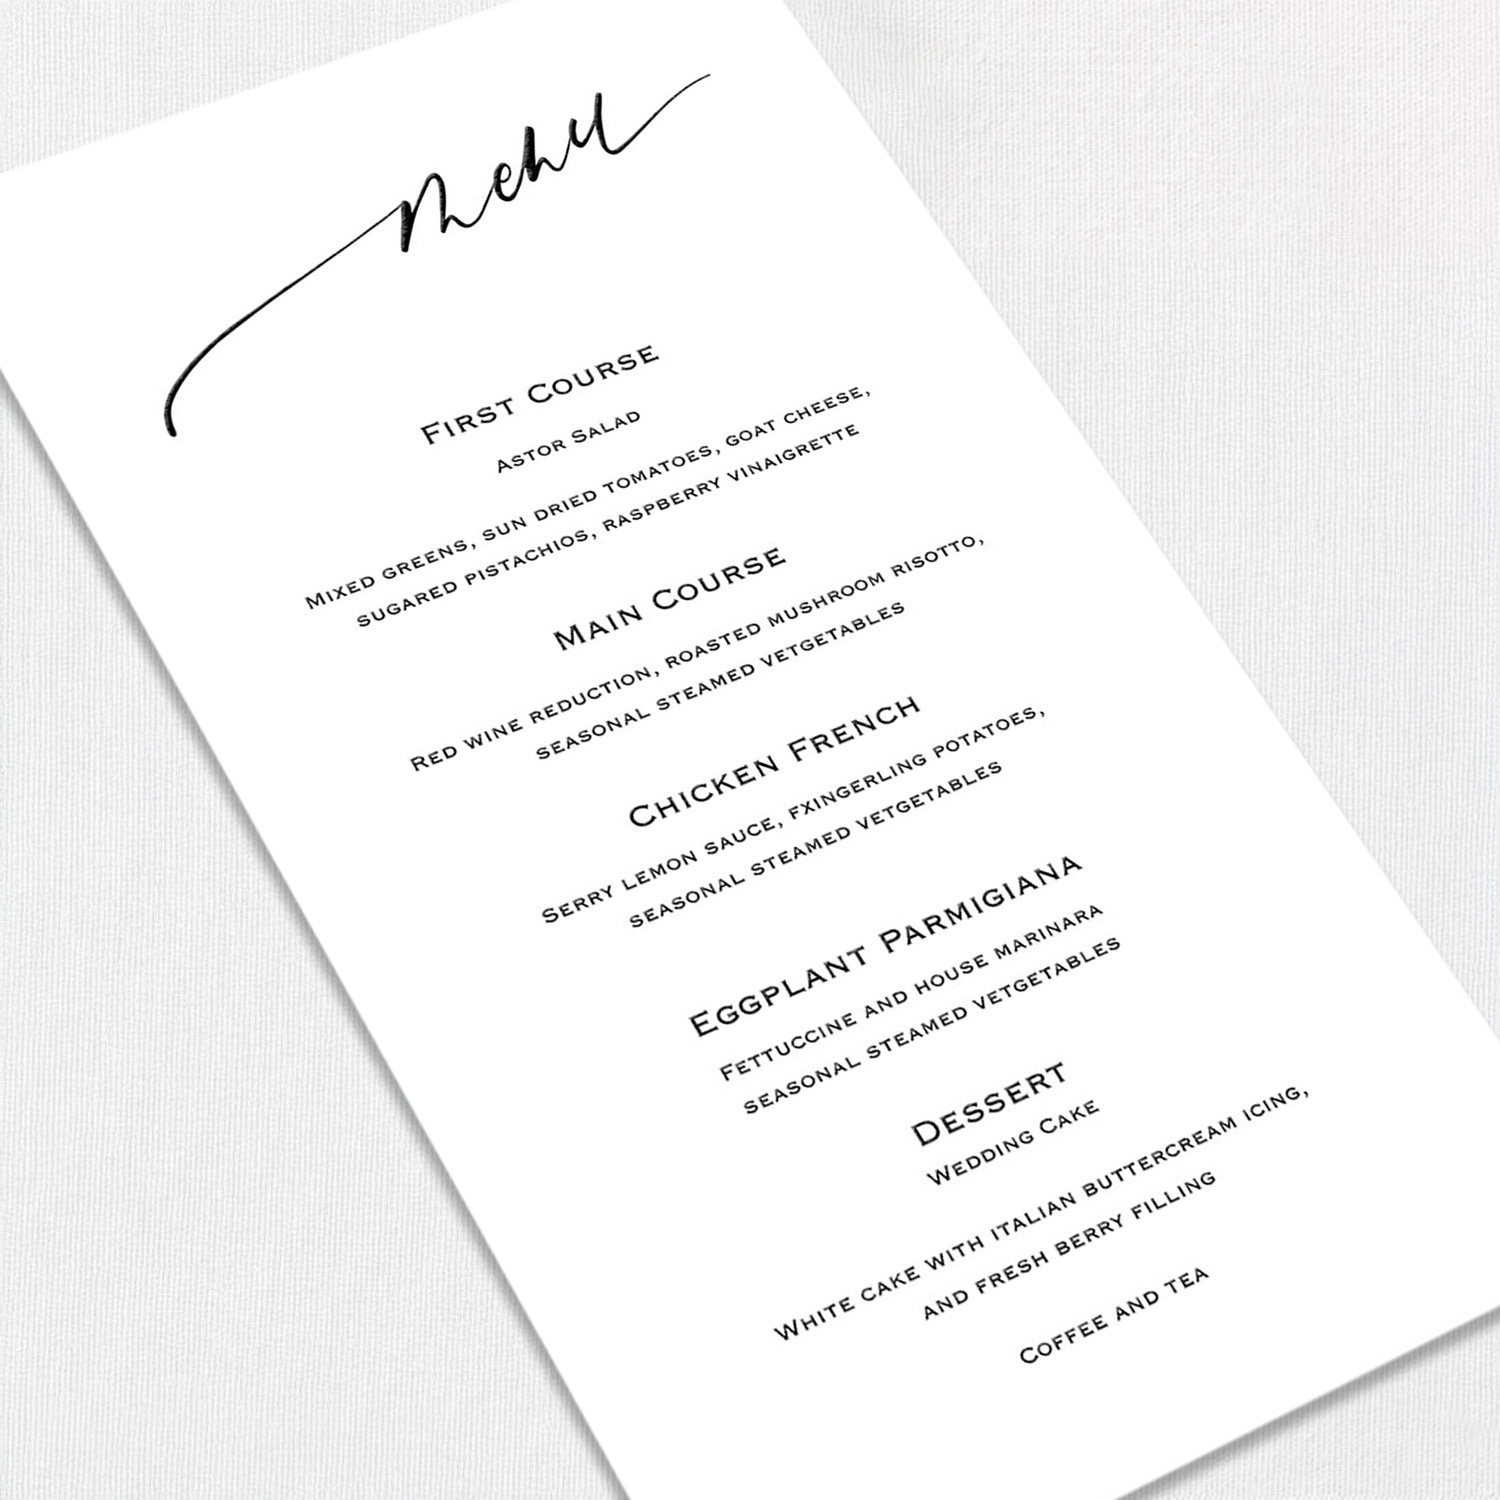 Menu
First Course
Astor Salad
Mixed greens, sun dried tomatoes, goat cheese,
sugared pistachios, raspberry vinaigrette
Main Course
Red wine reduction, roasted mushroom risotto,
seasonal steamed vetgetables
Chicken French
Serry lemon sauce, fxingerling potatoes,
seasonal steamed vetgetables
Eggplant Parmigiana
Fettuccine and house marinara
seasonal steamed vetgetables
Dessert
Wedding Cake
White cake with italian buttercream icing,
and fresh berry filling
Coffee and tea